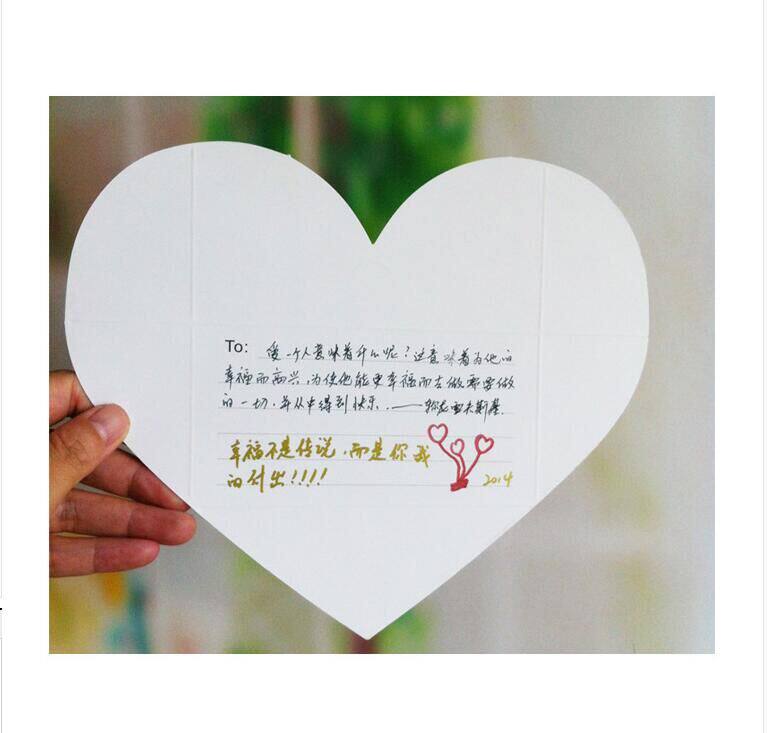 To: 爱一个人意味着什么呢?这意味着为他的
幸福而高兴,为使他能更幸福而去做需要做
的一切,并从中得到快乐.——车尔尼雪夫斯基.
幸福不是传说,而是你我
的付出!!!!
2014